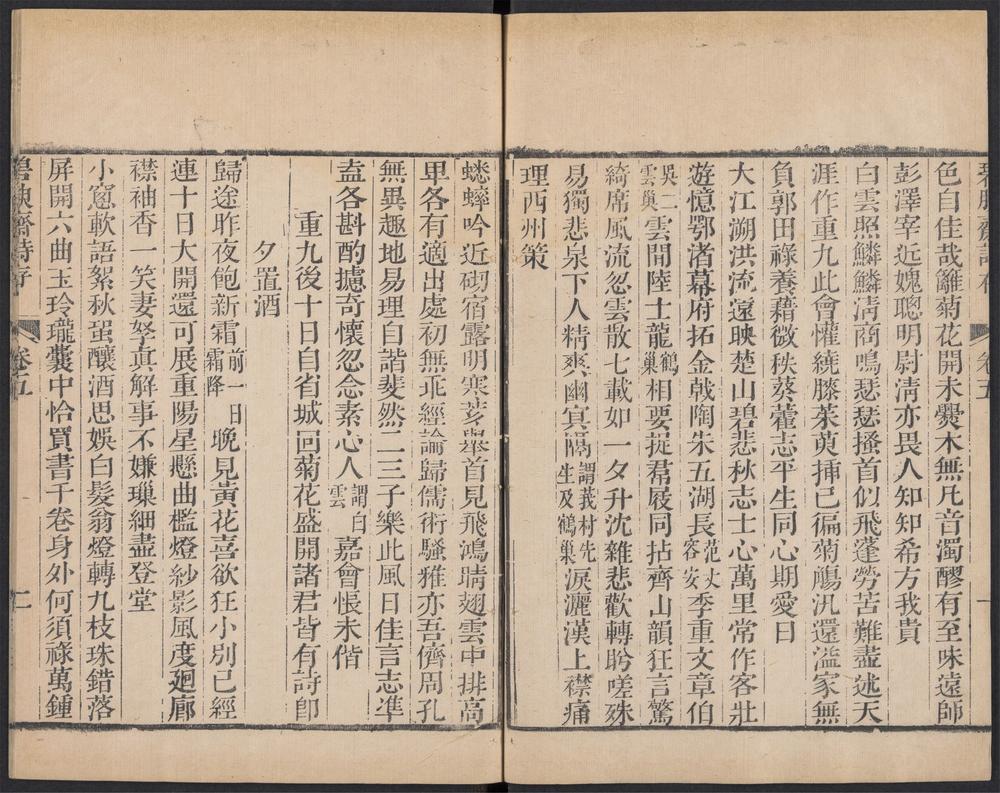 卷五
一
色自佳哉籬菊花開未爨木無凡音濁醪有至味遠師
彭澤宰近媿聰明尉淸亦畏人知知希方我貴
白雲照鱗鱗淸商鳴瑟瑟搔首似飛蓬勞苦難盡述天
涯作重九此會懽繞膝茱萸揷已徧菊觴汎還溢家無
負郭田祿養藉微秩葵藿志平生同心期愛日
大江溯洪流遠映楚山碧悲秋志士心萬里常作客壯
遊憶鄂渚幕府拓金戟陶朱五湖長范丈容安季重文章伯
吳二雲巢雲間陸士龍鶴巢相要捉麈屐同拈齊山韻狂言驚
綺席風流忽雲散七載如一夕升沈雜悲歡轉盻嗟殊
易獨悲泉下人精爽幽冥隔謂莪村先生及鶴巢淚灑漢上襟痛
理西州策
蟋蟀吟近砌宿露明寒莎舉首見飛鴻晴翅雲中排高
卑各有適出處初無乖經論歸儒術騷雅亦吾儕周孔
無異趣地易理自諧斐然二三子樂此風日佳言志凖
盍各斟酌攄奇懷忽念素心人謂白雲嘉會悵未偕
重九後十日自省城回菊花盛開諸君皆有詩卽
夕置酒
歸途昨夜飽新霜前一日霜降晚見黃花喜欲狂小別已經
連十日大開還可展重陽星懸曲檻燈紗影風度廻廊
襟袖香一笑妻孥真解事不嫌璅細盡登堂
小窻軟語絮秋蛩釀酒思娛白髮翁燈轉九枝珠錯落
屏開六曲玉玲瓏囊中恰買書千卷身外何須祿萬鍾
卷五
二